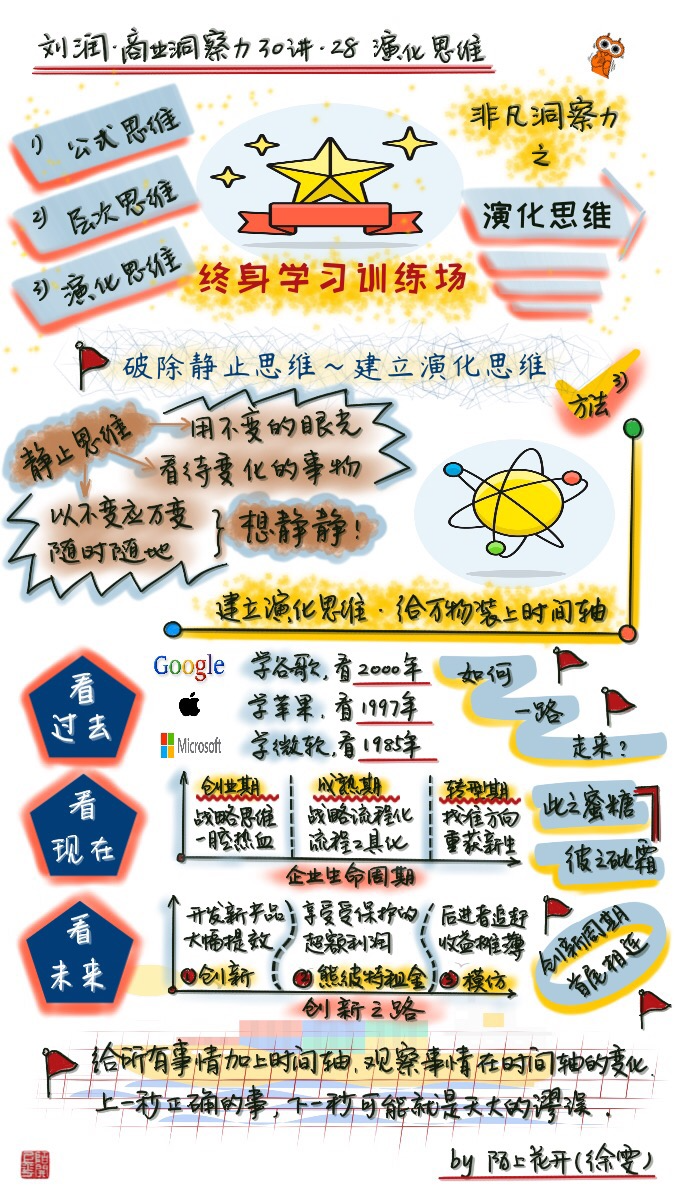 刘润·商业洞察力30讲·28 演化思维
1) 公式思维
2) 层次思维
3) 演化思维
非凡洞察力
之
演化思维
终身学习训练场
破除静止思维～建立演化思维
方法3)
静止思维
用不变的眼光
看待变化的事物
以不变应万变
随时随地
想静静!
建立演化思维·给万物装上时间轴
看
过去
Google
学谷歌,看2000年
学苹果,看1997年
Microsoft
学微软,看1985年
如何
一路
走来?
看
现在
创业期
战略思维
一腔热血
成熟期
战略流程化
流程工具化
转型期
找准方向
重获新生
企业生命周期
此之蜜糖
彼之砒霜
看
未来
开发新产品
大幅提效
①创新
享受受保护的
超额利润
②熊彼特租金
后进者追赶
收益摊薄
③模仿
创新之路
创新周期
首尾相连
给所有事情加上时间轴,观察事情在时间轴的变化.
上一秒正确的事,下一秒可能就是天大的谬误.
by 陌上花开(徐雯)